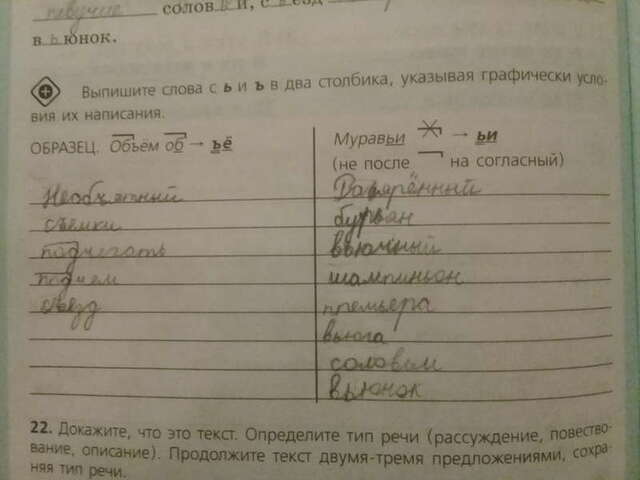 солов ь и, с
в ь юнок.
Выпишите слова с ь и ъ в два столбика, указывая графически усло-
вия их написания.
ОБРАЗЕЦ. Объём об → ъё
Муравьи → ьи
(не после на согласный)
Необъятный
съемки
подъем
съезд
шампиньон
премьера
вьюга
соловьи
вьюнок
22. Докажите, что это текст. Определите тип речи (рассуждение, повество-
вание, описание). Продолжите текст двумя-тремя предложениями, сохра-
няя тип речи.